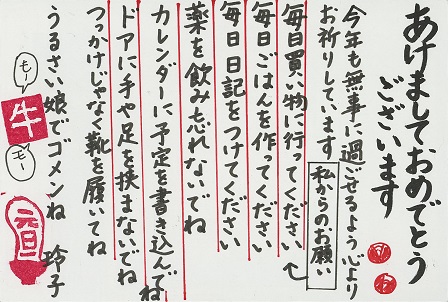 あけましておめでとう
ございます
今年も無事に過ごせるよう心より
お祈りしています
私からのお願い
毎日買い物に行ってください
毎日ごはんを作ってください
毎日日記をつけてください
薬を飲み忘れないでね
カレンダーに予定を書き込んでね
ドアに手や足を挟まないでね
つっかけじゃなく靴を履いてね
うるさい娘でゴメンね
玲子
もー
牛
モー
元旦